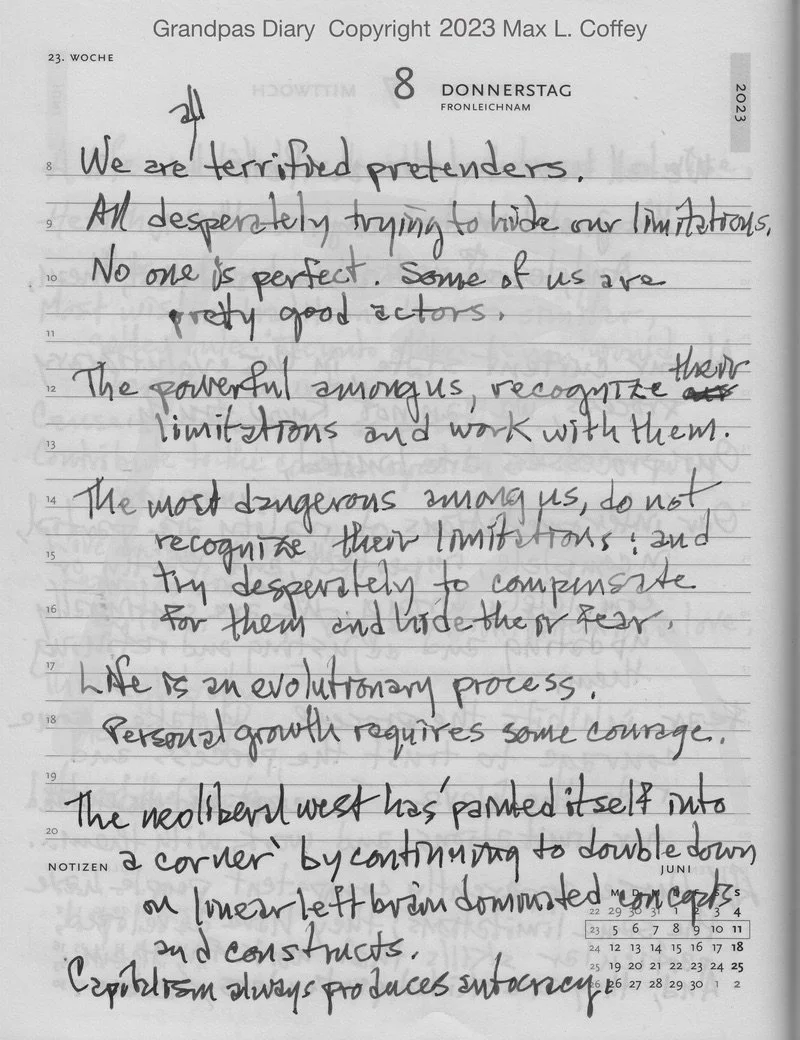 Grandpas Diary Copyright 2023 Max L. Coffey
23. WOCHE
8 DONNERSTAG
FRONLEICHNAM
2023
all
8 We are terrified pretenders.
9 All desperately trying to hide our limitations.
10 No one is perfect. Some of us are
pretty good actors.
11
their
12 The powerful among us, recognize
limitations and work with them.
13
14 The most dangerous among us, do not
recognize their limitations; and
15
try desperately to compensate
16 for them and hide their fear.
17 Life is an evolutionary process.
18 Personal growth requires some courage.
19
The neoliberal west has 'painted itself into
20
NOTIZEN a corner' by continuing to double down
JUNI
on linear left brain dominated concepts
M D M D F S S
22 29 30 31 1 2 3 4
23 5 6 7 8 9 10 11
and constructs.
24 12 13 14 15 16 17 18
25 19 20 21 22 23 24 25
Capitalism always produces autocracy.
26 26 27 28 29 30 1 2